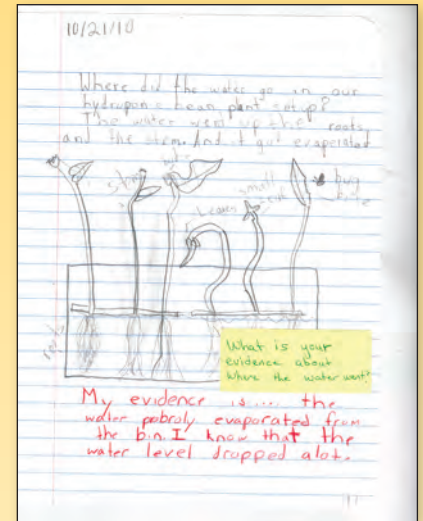 10/21/10
Where did the water go in our
hydroponic bean plant setup?
The water went up the roots
and the stem. And it got evaporated
stem
Leaves
small
bug
bite
roots
What is your
evidence about
where the water went?
My evidence is.... the
water pobroly evaporated from
the bin. I know that the
water level dropped alot.